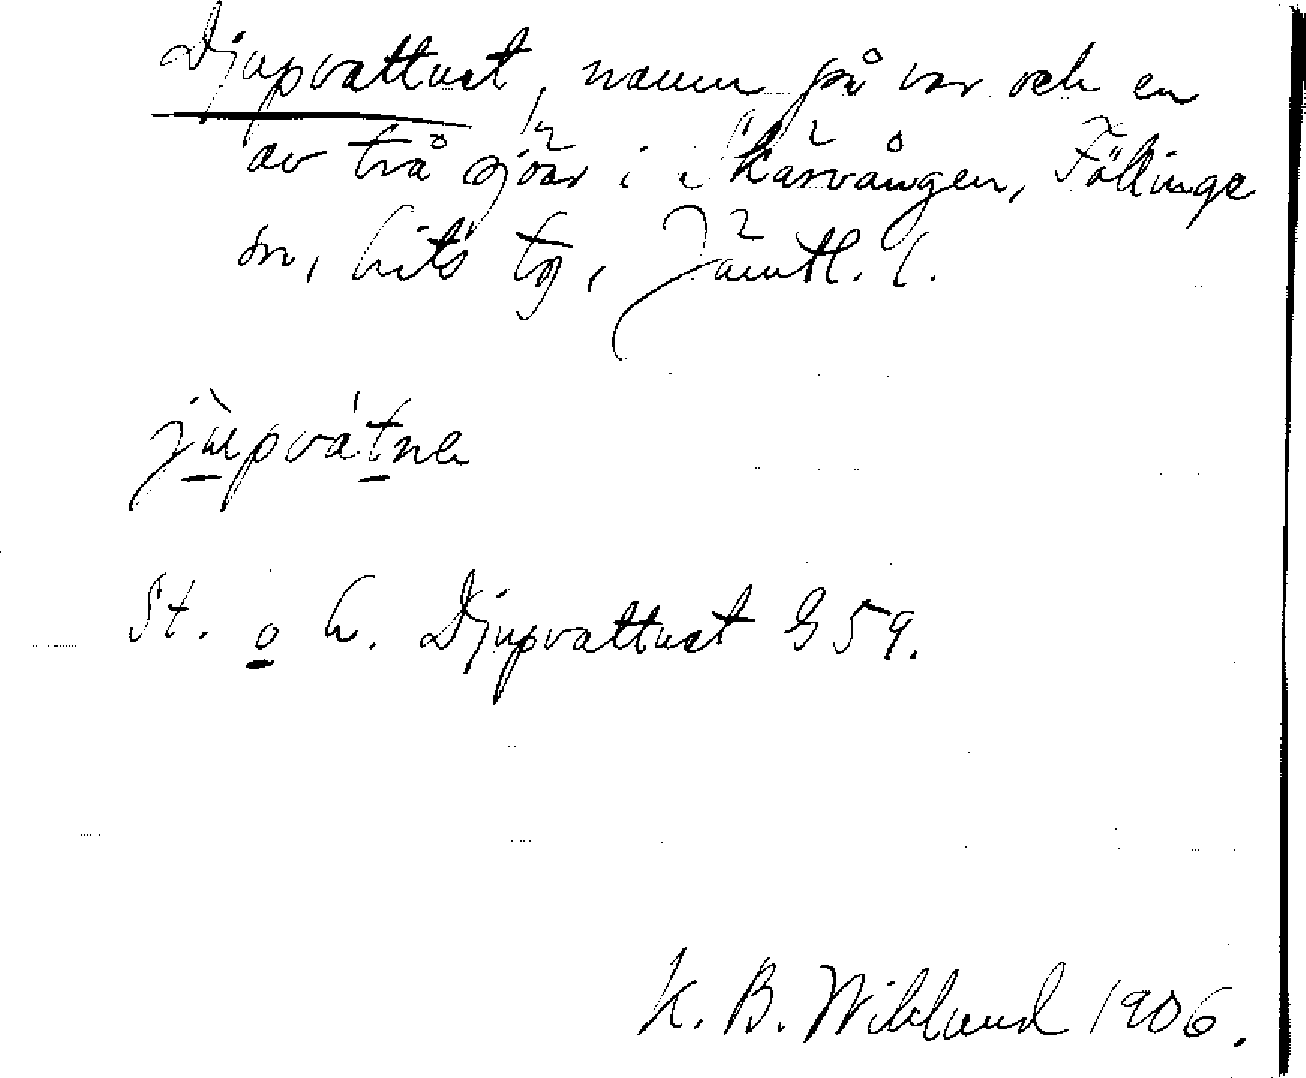 Djupvattnet, namn på var och en
av två sjöar i i Kärvången, Föllinge
sn, Lits tg, Jämtl. l.
jùpvátne
St. o L. Djupvattnet G 59.
K. B. Wiklund 1906.